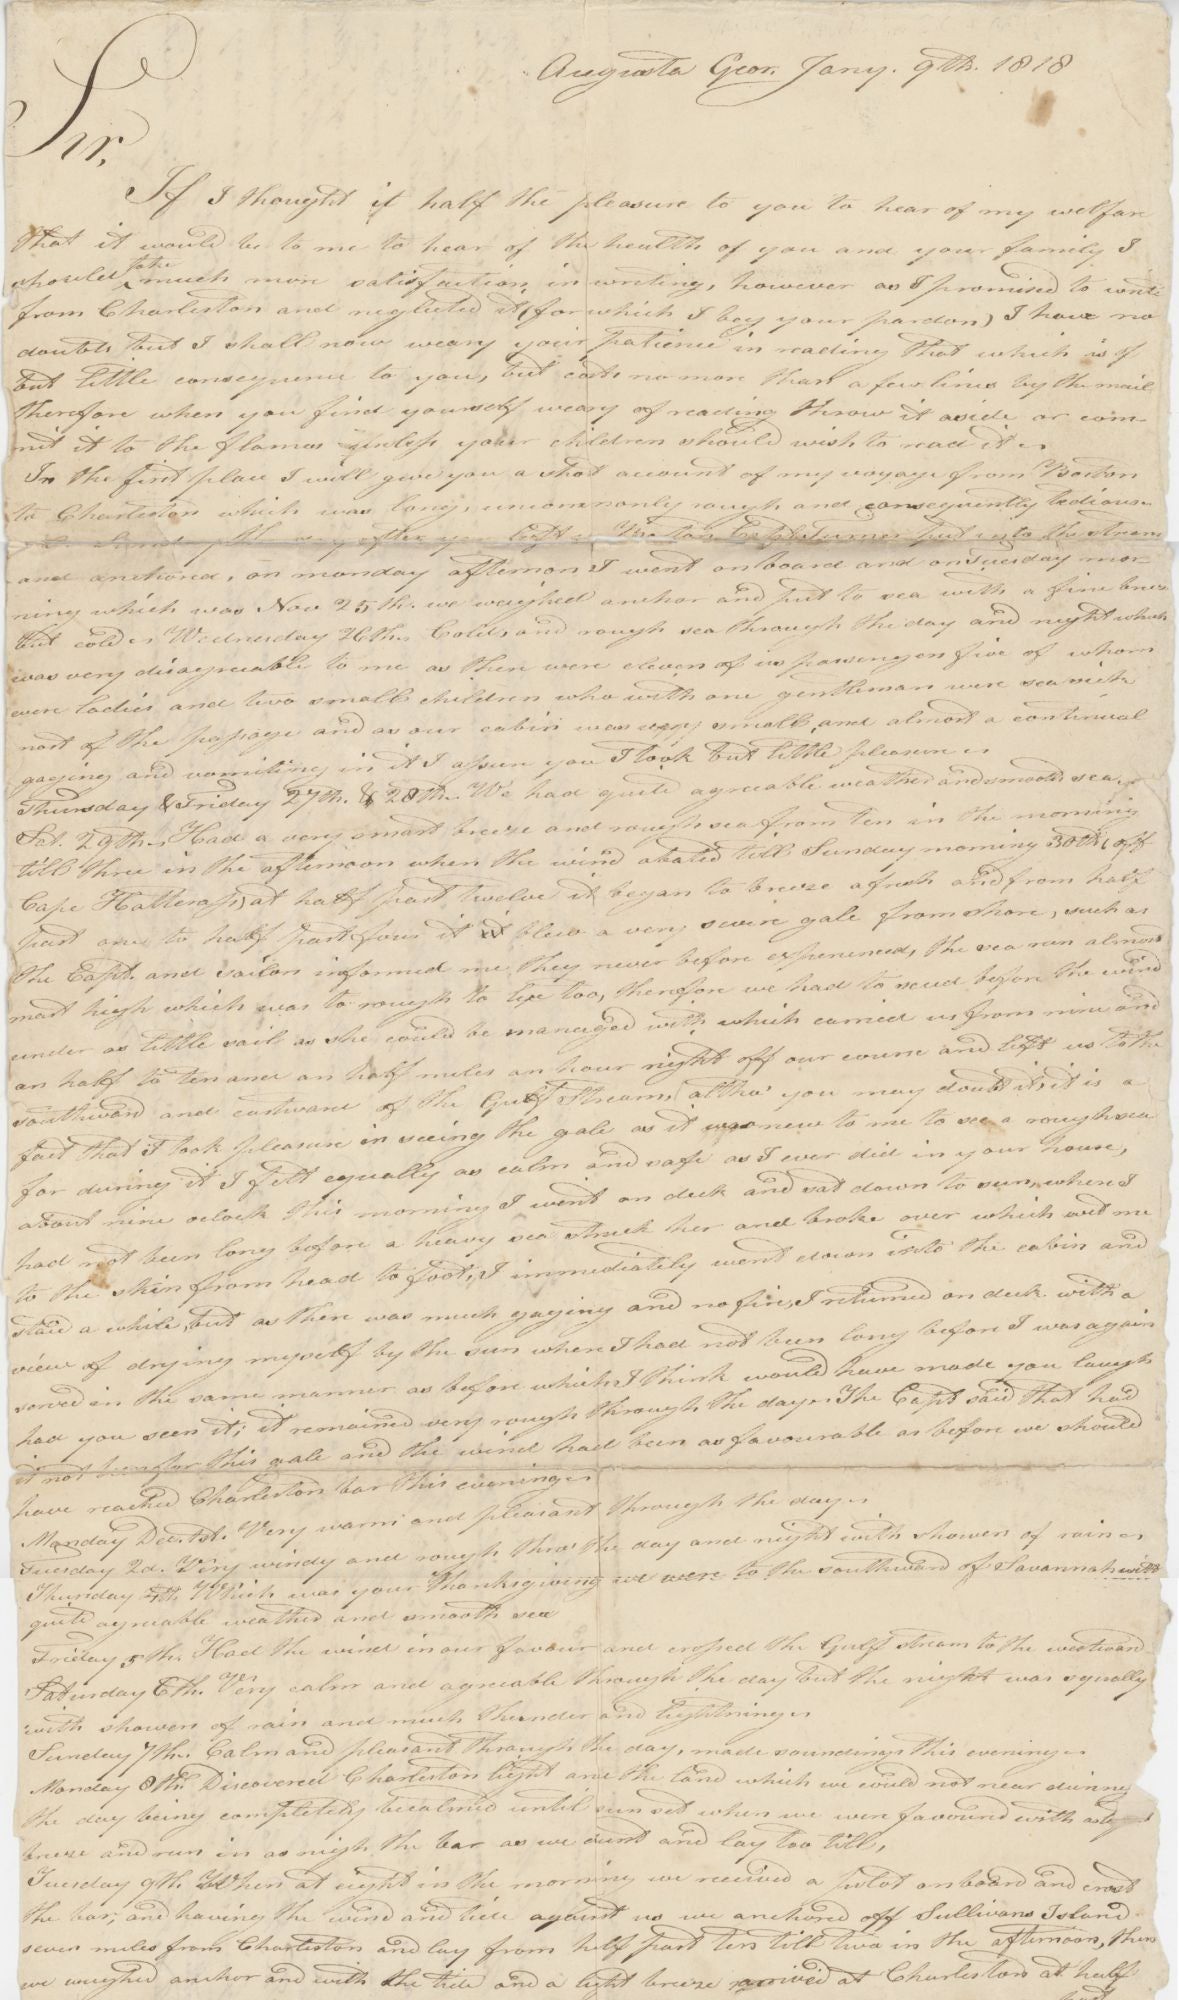 Augusta Geor. Jany. 9th. 1818
Sir,
If I thought it half the pleasure to you to hear of my welfare
that it would be to me to hear of the health of you and your family I
should take much more satisfaction in writing, however as I promised to write
from Charleston and neglected it (for which I beg your pardon) I have no
doubt but I shall now weary your patience in reading that which is of
but little consequence to you, but costs no more than a few lines by the mail
therefore when you find yourself weary of reading throw it aside or com-
mit it to the flames unless your children should wish to read it
In the first place I will give you a shot account of my voyage from Boston
to Charleston which was long, uncommonly rough and consequently tedious
after you left Boston Capt. Turner put into the stream
and anchored, on monday afternoon I went on board and on Tuesday mor-
ning which was Nov 25th. we weighed anchor and put to sea with a fine breeze
but cold Wednesday 26th. Cold, and rough sea through the day and night which
was very disagreeable to me as there were eleven of us passengers five of whom
were ladies and two small children who with one gentleman were sea sick
most of the passage and as our cabin was very small, and almost a continual
gaging and vomiting in it I assure you I took but little pleasure
Thursday & Friday 27th. & 28th. We had quite agreeable weather and smooth sea
Sat. 29th. Had a very smart breeze and rough sea from ten in the morning
till three in the afternoon when the wind abated till Sunday morning 30th. (off
Cape Hatterass) at half past twelve it began to breeze afresh and from half
past one to half past four it blew a very severe gale from shore, such as
the Capt. and sailors informed me they never before experienced, the sea ran almost
mast high which was to rough to lye too, therefore we had to scud before the wind
under as little sail as she could be managed with which carried us from nine and
an half to ten and an half miles an hour right off our course and left us to the
southward and eastward of the Gulf Stream, altho' you may doubt it, it is a
fact that I took pleasure in seeing the gale as it was new to me to see a rough sea
for during it I felt equally as calm and safe as I ever did in your house,
about nine oclock this morning I went on deck and sat down to sun, where I
had not been long before a heavy sea struck her and broke over which wet me
to the skin from head to foot, I immediately went down into the cabin and
staid a while, but as there was much gaging and no fire, I returned on deck with a
view of drying myself by the sun where I had not been long before I was again
served in the same manner as before which I think would have made you laugh
had you seen it; it remained very rough through the day The Capt said that had
it not been for this gale and the wind had been as favourable as before we should
have reached Charleston bar this evening
Monday Dec. 1st. Very warm and pleasant through the day
Tuesday 2d. Very windy and rough thro the day and night with showers of rain
Thursday 4th. Which was your Thanksgiving we were to the southward of Savannah with
quite agreeable weather and smooth sea
Friday 5th. Had the wind in our favour and crossed the Gulf stream to the westward
Saturday 6th. Very calm and agreeable through the day but the night was squally
with showers of rain and much thunder and lightning
Sunday 7th. Calm and pleasant through the day, made soundings this evening
Monday 8th. Discovered Charleston light and the land which we could not near during
the day being completely becalmed until sun set when we were favoured with a
breeze and run in as nigh the bar as we durst and lay too till,
Tuesday 9th. When at eight in the morning we received a pilot on board and crost
the bar, and having the wind and tide against us we anchored off Sullivans Island
seven miles from Charleston and lay from half past ten till two in the afternoon, then
we weighed anchor and with the tide and a light breeze arrived at Charleston at half
past